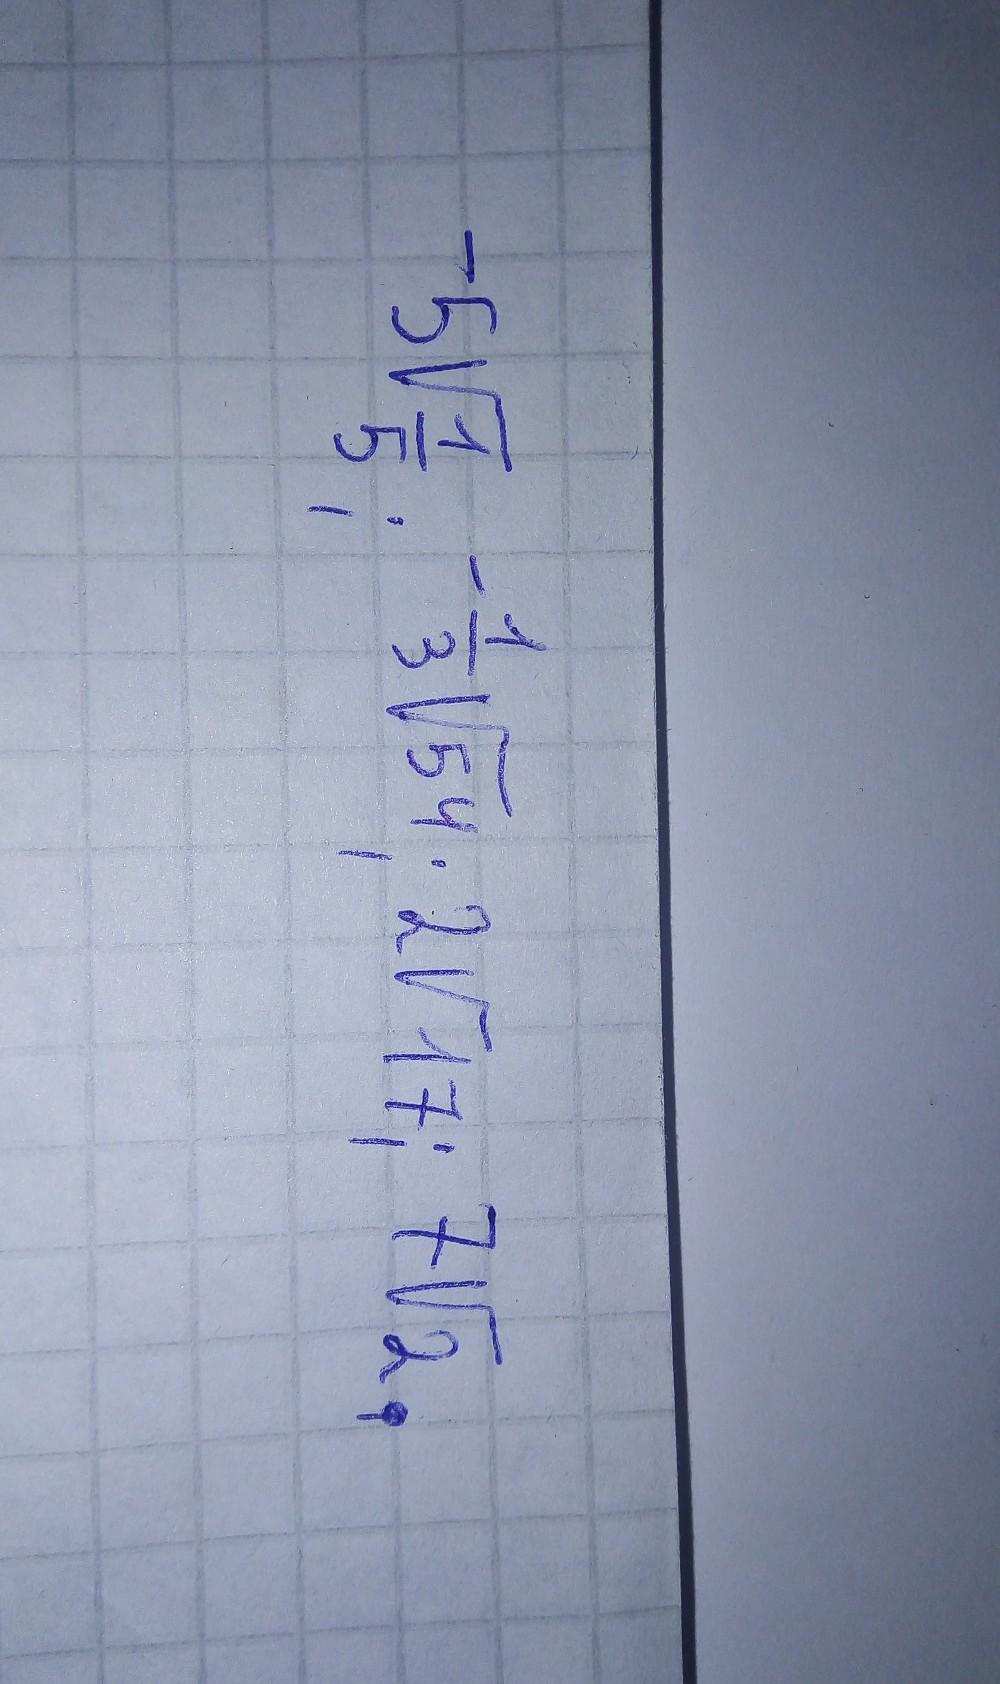 -5√1/5; -1/3√54; 2√17; 7√2;